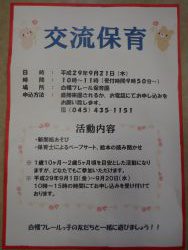 交流保育
日　時：平成29年9月21日（木）
時　間：10時～11時（受付時間9時50分～）
場　所：白幡フレール保育園
申込方法：直接来園されるか、お電話にてお申し込みを
お願い致します。
☎（045）435-1151
活動内容
・新聞紙あそび
・保育士によるペープサート、絵本の読み聞かせ
※1歳10ヶ月～2歳5ヶ月頃を目安とした活動になり
ますが、どなたでもご参加いただけます。
※平成29年9月1日（金）～9月20日（水）
10時～15時の時間にてお申し込みを受け付けて
おります。
白幡フレールっ子のお友だちと一緒に遊びましょう！！